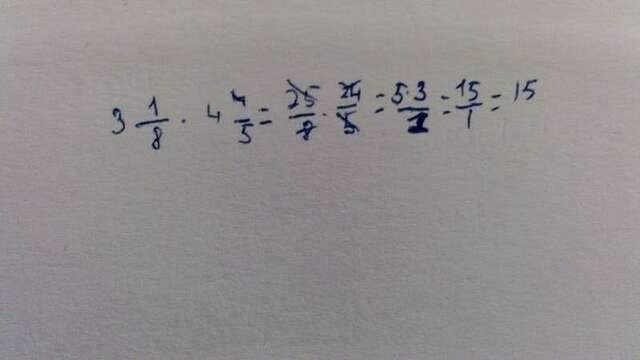 3 1/8 · 4 4/5 = 25/8 · 24/5 = 5·3/1 = 15/1 = 15